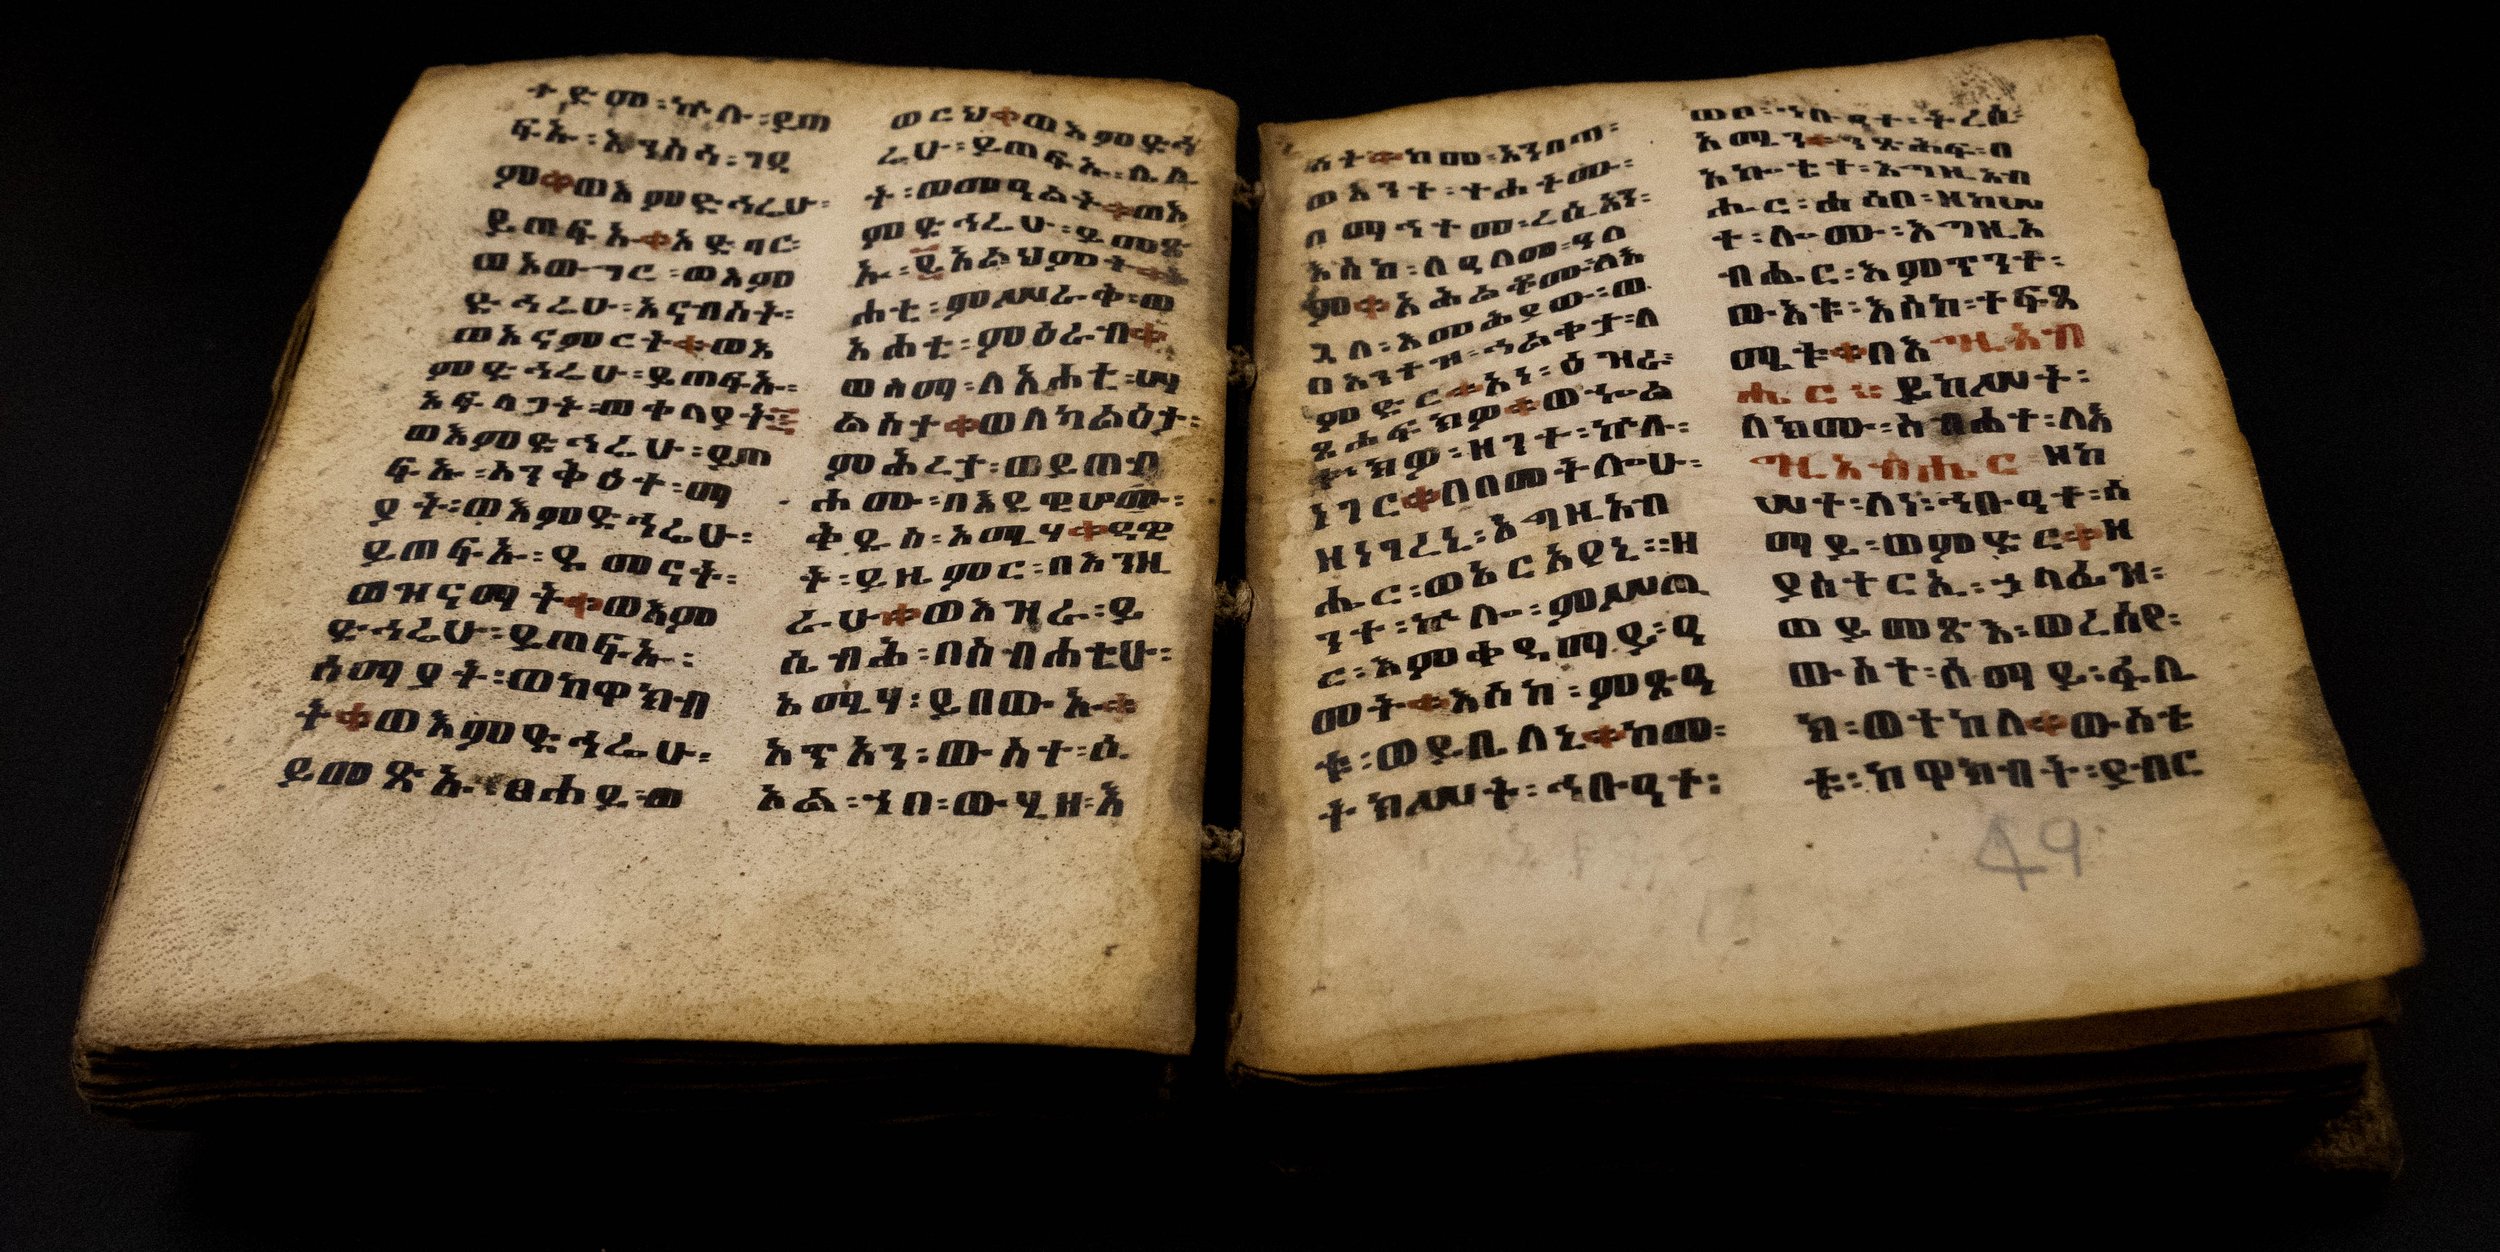 ተድመ፡ኵሉ፡ይጠ
ፍኡ፡እንስሳ፡ገዳ
ም።ወእምድኅሬሁ፡
ይጠፍኡ።አድባር፡
ወአውግር፡ወእም
ድኅሬሁ፡አናብስት፡
ወአናምርት።ወእ
ምድኅሬሁ፡ይጠፍኡ፡
አፍላጋት፡ወቀላያት።
ወእምድኅሬሁ፡ይጠ
ፍኡ፡አንቅዕተ፡ማ
ያት፡ወእምድኅሬሁ፡
ይጠፍኡ፡ደመናት፡
ወዝናማት።ወእም
ድኅሬሁ፡ይጠፍኡ፡
ሰማያት፡ወከዋክብ
ት።ወእምድኅሬሁ፡
ይመጽእ፡ፀሐይ፡ወ
ወርህ።ወእምድኅ
ሬሁ፡ይጠፍኡ፡ሌሊ
ት፡ወመዓልት።ወእ
ምድኅሬሁ፡ይመጽ
ኡ፡፪አልህምት።አ
ሐቲ፡ምሥራቅ፡ወ
አሐቲ፡ምዕራብ።
ወስማ፡ለአሐቲ፡ሣ
ልስታ።ወለካልዕታ፡
ምሕረታ፡ወይጠብ
ሐሙ፡በእደዊሆሙ፡
ቅዱስ፡አሚሃ።ዳዊ
ት፡ይዜምር፡በእንዚ
ራሁ።ወእዝራ፡ይ
ሴብሕ፡በስብሐቲሁ፡
አሚሃ፡ይበውኡ።
ኃጥኣን፡ውስተ፡ሲ
ኦል፡ኀበ፡ውሂዘ፡እ
ሳት።ከመ፡
ወእንተ፡ተሐትሙ፡
በማኅተመ፡ረሲአን፡
እስከ፡ለዓለመ፡ዓለ
ም።አሕልቶሙ፡ለእ
ጓለ፡እመሕያው፡ወ
በእንተዝ፡ኅልቀታ፡ለ
ምድር።አነ፡ዕዝራ፡
ጸሐፍክዎ።ወኍል
ቍክዎ፡ዘንተ፡ኵሉ፡
ነገር።በበመትሎሁ፡
ዘነገረኒ፡እግዚአብ
ሔር፡ወአርአየኒ፡፡ዘ
ንተ፡ኵሎ፡ምሥጢ
ር፡እምቀዳማይ፡ዓ
መት።እስከ፡ምጽዓ
ቱ፡ወይቤለኒ።ከመ፡
ትክሥት፡ኅቡዓተ፡
ኅቡዓተ፡ትረሲ፡
አሜን።ንጽሐፍ፡በ
አኰቴተ፡እግዚአብ
ሔር፡ሐሳበ፡ዘከሠ
ተ፡ሎሙ፡እግዚአ
ብሔር፡እምጥንተ፡
ውእቱ፡እስከ፡ተፍጻ
ሜቱ።በእግዚአብ
ሔር፡፡ይክሥት፡
ለክሙ፡ስብሐተ፡ለእ
ግዚአብሔር፡ዘከ
ሠተ፡ለነ፡ኅቡዓተ፡ሰ
ማይ፡ወምድር።ዘ
ያስተርኢ፡ኃላፌ፡ዝ፡
ወይመጽእ፡ወረሰየ፡
ውስተ፡ሰማይ፡ፈለ
ክ፡ወተከለ።ውስቴ
ቱ፡ከዋክብት፡ይብር
49